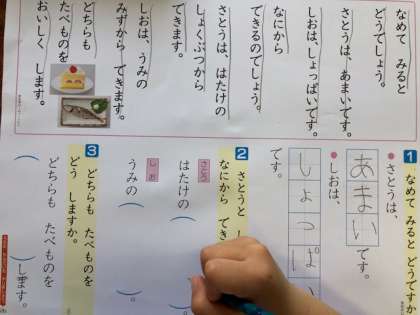 なめて みると
どうでしょう。
さとうは、あまいです。
しおは、しょっぱいです。
なにから
できるのでしょう。
さとうは、はたけの
しょくぶつから
できます。
しおは、うみの
みずから できます。
どちらも
たべものを
おいしく します。
1 なめて みると どうですか
さとうは、
あまい です。
しおは、
しょっぱ
です。
2 さとうと
なにから でき
さとう
はたけの（
しお
うみの（ ）。
3 どちらも たべものを
どう しますか。
どちらも たべものを
（ ）します。